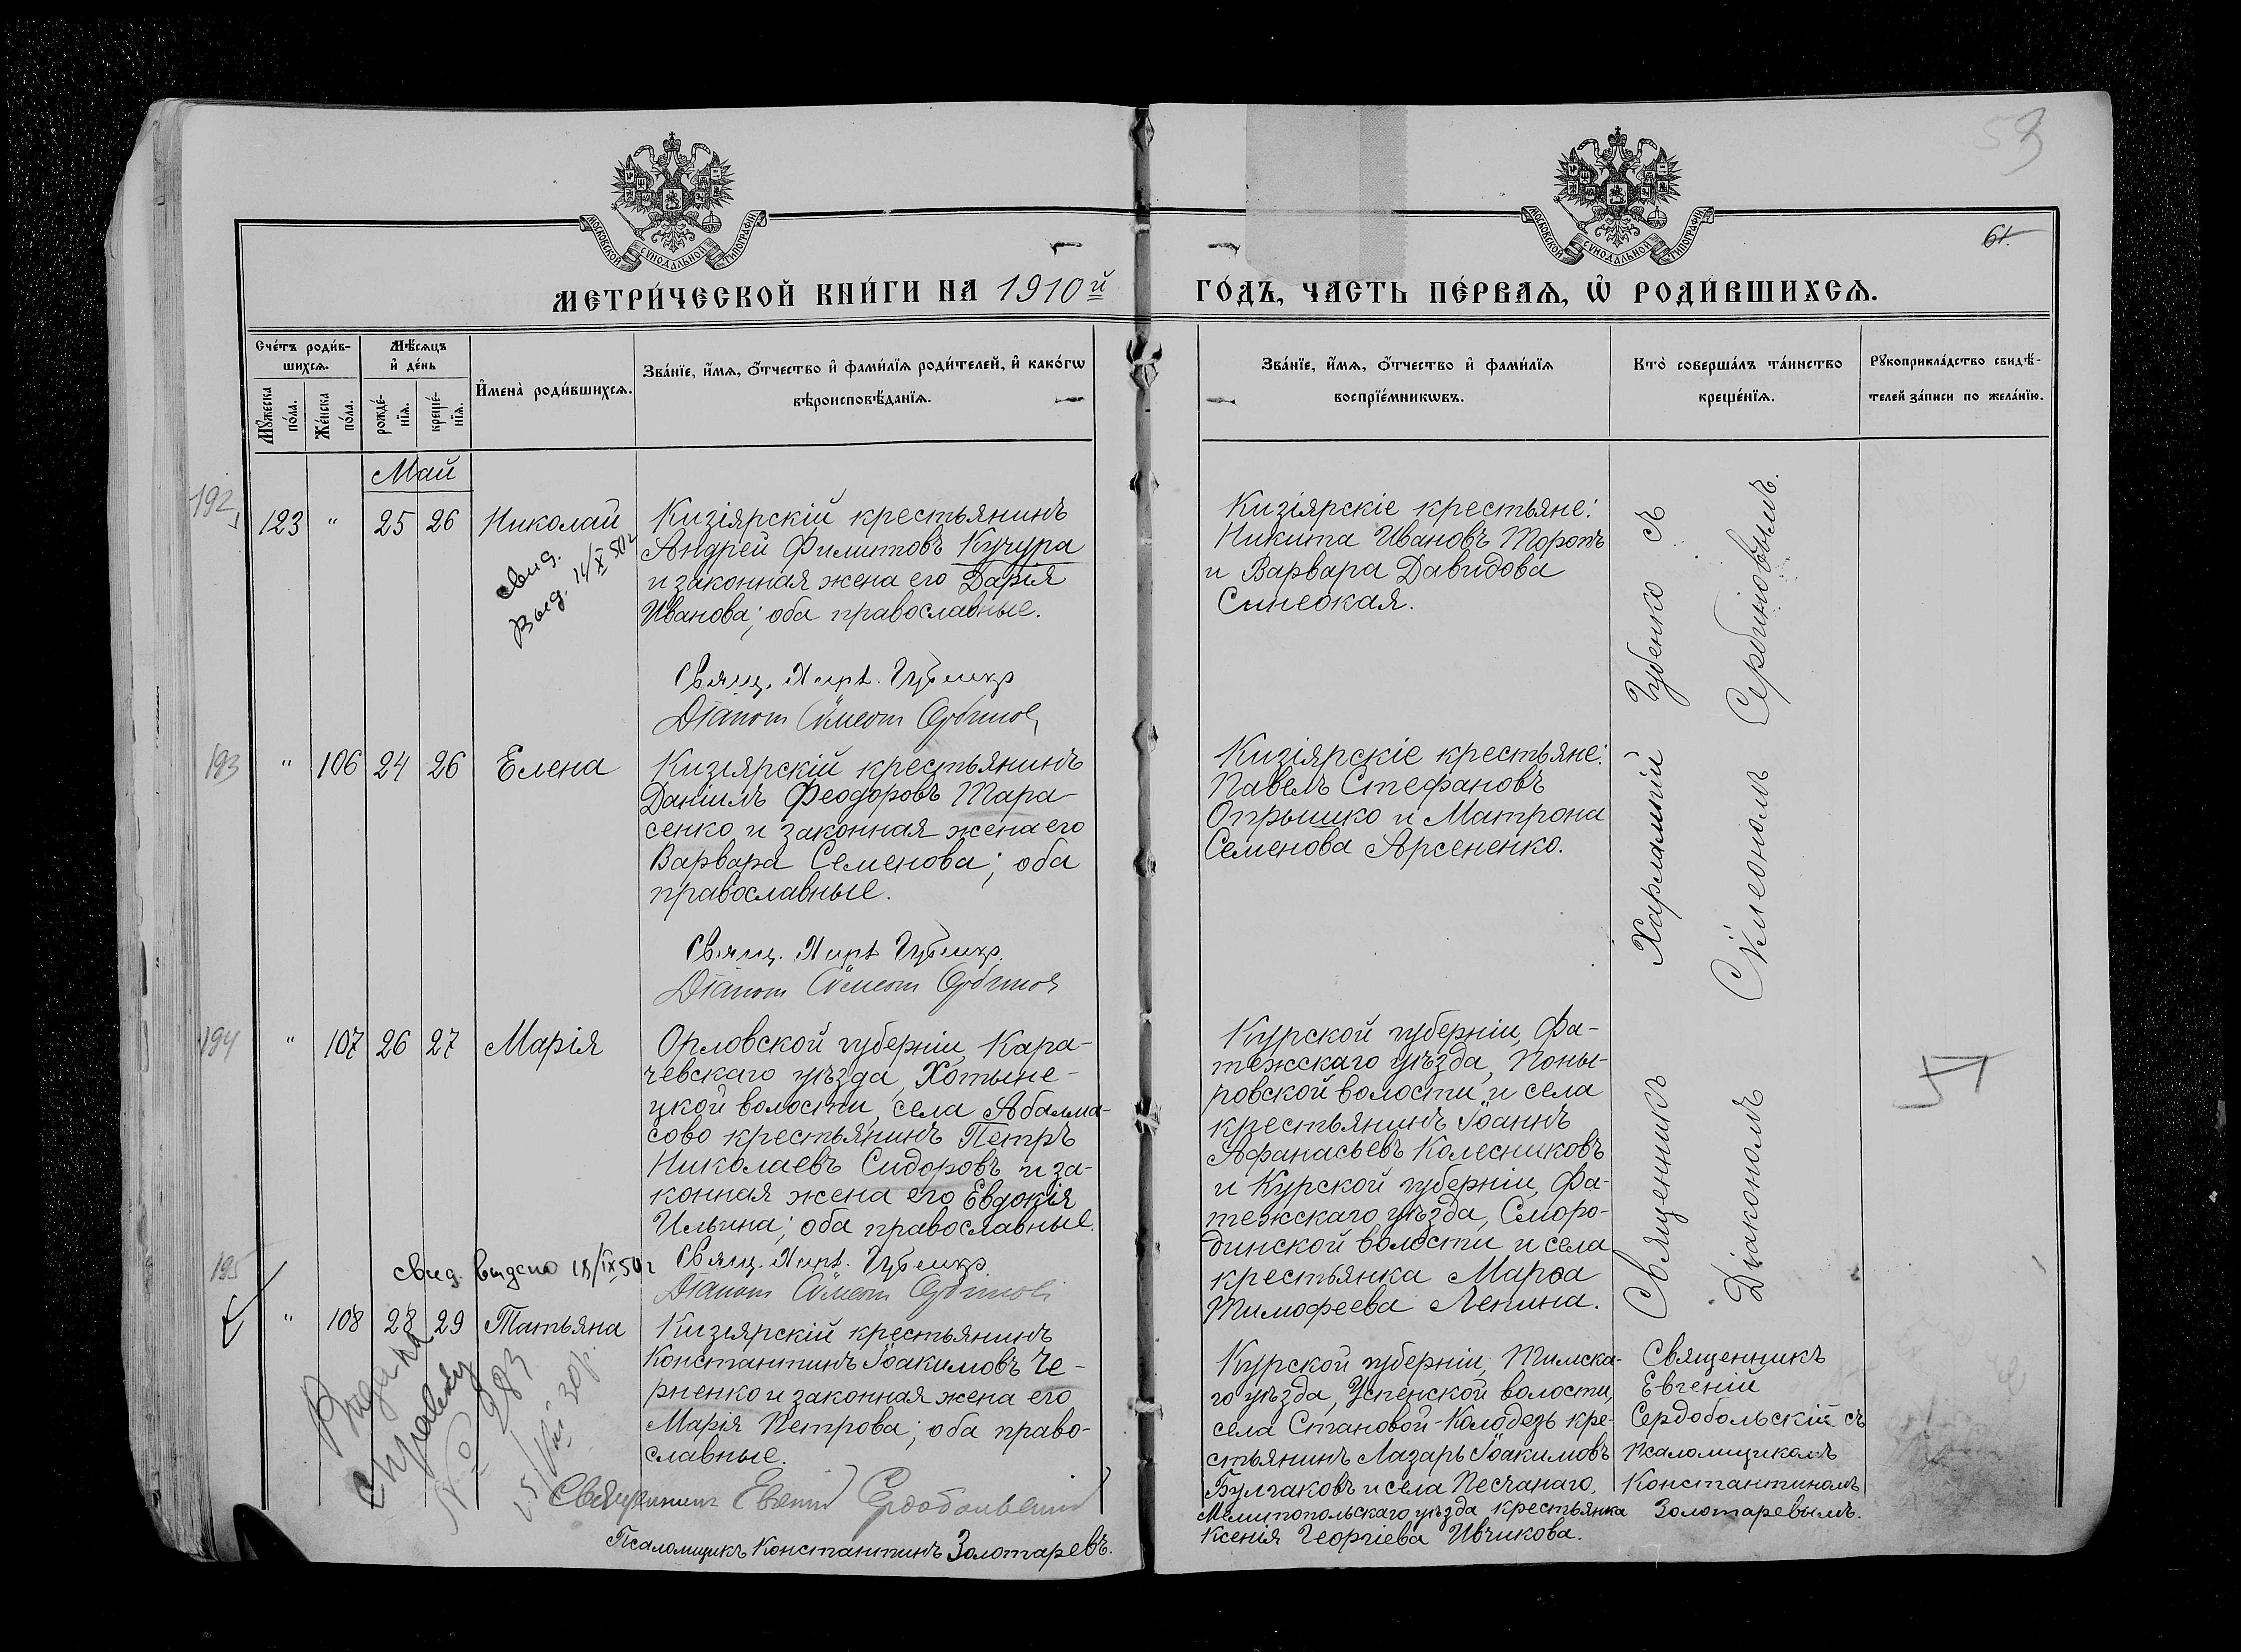 53
61.
МОСКОВСКОЙ СУНОДАЛЬНОЙ ТИПОГРАФІИ
МОСКОВСКОЙ СУНОДАЛЬНОЙ ТИПОГРАФІИ
МЕТРИ́ЧЕСКОЙ КНИ́ГИ НА 1910й
ГО́ДЪ, ЧАСТЬ ПЕ́РВАѦ, Ѡ҆ РОДИ́ВШИХСѦ.
Сче́тъ роди́в-
шихсѧ.
Мꙋжеска по́ла.
Же́нска по́ла.
Мѣ́сѧцъ
и҆ де́нь
рожде́-
нїѧ.
креще́-
нїѧ.
И҆мена̀ роди́вшихсѧ.
Зва́нїе, и҆́мѧ, ѻ҆́тчество и҆ фами́лїѧ роди́телей, и҆ како́гѡ
вѣроисповѣ́данїѧ.
Зва́нїе, и҆́мѧ, ѻ҆́тчество и҆ фами́лїѧ
воспрїе́мникѡвъ.
Кто̀ соверша́лъ та́инство
креще́нїѧ.
Рꙋкоприкла́дство свидѣ́-
телей за́писи по жела́нїю.
Май
192
123 " 25 26 Николай
свид.
выд. 14/X 50г
Кизіярскій крестьянинъ
Андрей Филиповъ Кучура
и законная жена его Дарія
Иванова; оба православные.
Свящ. Хар. Губенко
Діаконъ Сѵмеонъ Сербиновъ
Кизіярскіе крестьяне:
Никита Ивановъ Торопъ
и Варвара Давидова
Синеокая.
193
" 106 24 26 Елена
Кизіярскій крестьянинъ
Даніилъ Феодоровъ Тара-
сенко и законная жена его
Варвара Семенова; оба
православные.
Свящ. Хар. Губенко
Діаконъ Сѵмеонъ Сербиновъ
Кизіярскіе крестьяне:
Павелъ Стефановъ
Опрышко и Матрона
Семенова Арсененко.
194
" 107 26 27 Марія
Орловской губерніи, Кара-
чевскаго уѣзда, Хотыне-
цкой волости, села Абалма-
сово крестьянинъ Петръ
Николаевъ Сидоровъ и за-
конная жена его Евдокія
Ильина; оба православные.
Свящ. Хар. Губенко
Діаконъ Сѵмеонъ Сербиновъ
Курской губерніи, Фа-
тежскаго уѣзда, Поны-
ровской волости и села
крестьянинъ Іоаннъ
Афанасьевъ Колесниковъ
и Курской губерніи, Фа-
тежскаго уѣзда, Сморо-
динской волости и села
крестьянка Марѳа
Тимофеева Ленина.
Священникъ Харлампій Губенко съ
Діакономъ Сѵмеономъ Сербиновымъ.
195
свид. выдано 18/IX 50г
" 108 28 29 Татьяна
Видана
справку
№ 283
Кизіярскій крестьянинъ
Константинъ Іоакимовъ Че-
рненко и законная жена его
Марія Петрова; оба право-
славные.
Священникъ Евгеній Сердобольскій
Псаломщикъ Константинъ Золотаревъ.
Курской губерніи, Тимска-
го уѣзда, Успенской волости,
села Становой-Колодезь кре-
стьянинъ Лазарь Іоакимовъ
Булгаковъ и села Песчанаго,
Мелитопольскаго уѣзда крестьянка
Ксенія Георгіева Ивчикова.
Священникъ
Евгеній
Сердобольскій съ
псаломщикомъ
Константиномъ
Золотаревымъ.